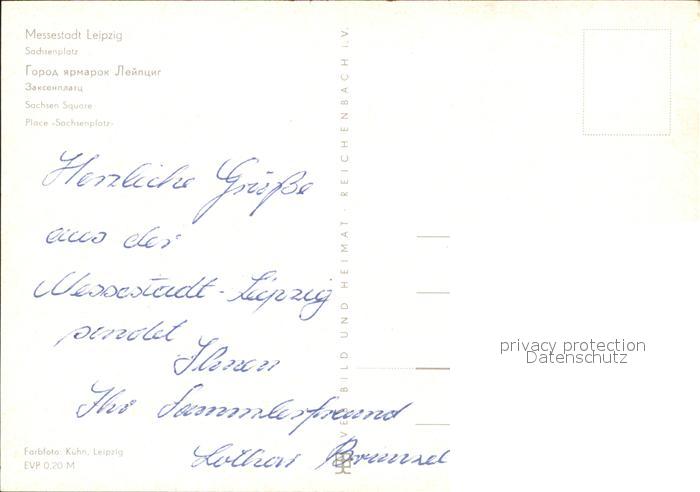 Messestadt Leipzig
Sachsenplatz
Город ярмарок Лейпциг
Заксенплатц
Sachsen Square
Place «Sachsenplatz»
Herzliche Grüße
aus der
Messestadt-Leipzig
sendet
Ihnen
Ihr Sammlerfreund
Lothar
Farbfoto: Kühn, Leipzig
EVP 0,20 M
BILD UND HEIMAT · REICHENBACH i. V.
privacy protection
Datenschutz